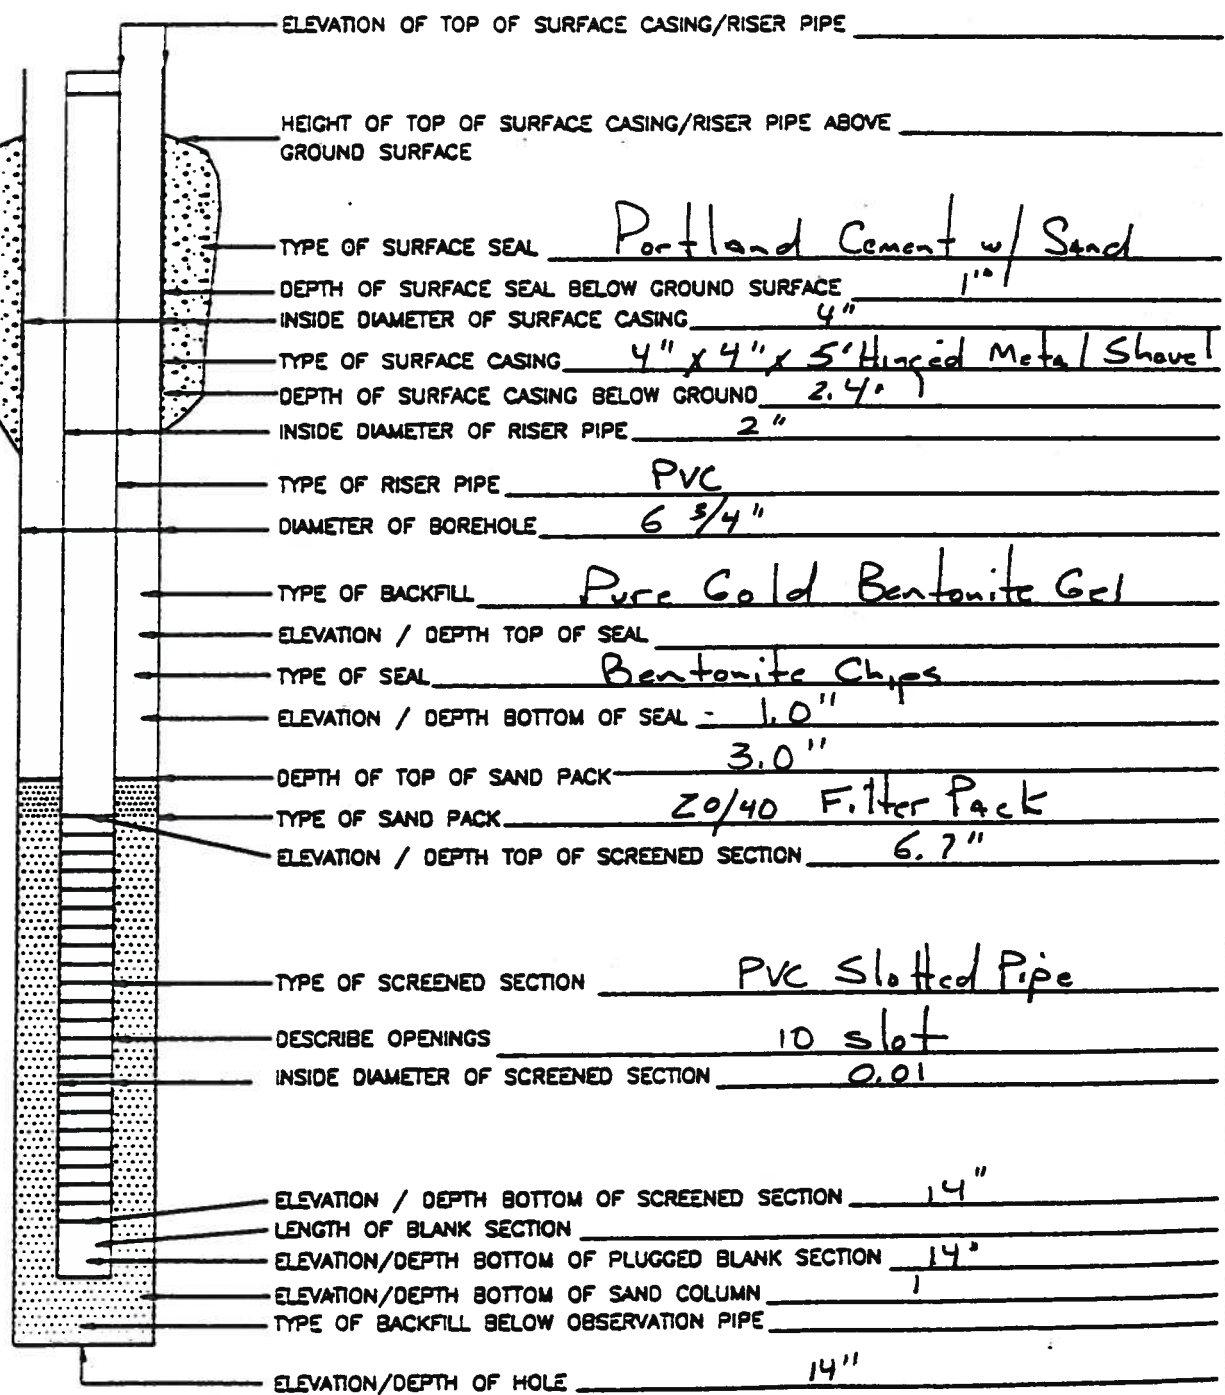 ELEVATION OF TOP OF SURFACE CASING/RISER PIPE
HEIGHT OF TOP OF SURFACE CASING/RISER PIPE ABOVE
GROUND SURFACE
TYPE OF SURFACE SEAL Portland Cement w/ Sand
DEPTH OF SURFACE SEAL BELOW GROUND SURFACE 1"
INSIDE DIAMETER OF SURFACE CASING 4"
TYPE OF SURFACE CASING 4" x 4" x 5' Hinged Metal
DEPTH OF SURFACE CASING BELOW GROUND 2.4
INSIDE DIAMETER OF RISER PIPE 2"
TYPE OF RISER PIPE PVC
DIAMETER OF BOREHOLE 6 3/4"
TYPE OF BACKFILL Pure Gold Bentonite Gel
ELEVATION / DEPTH TOP OF SEAL
TYPE OF SEAL Bentonite Chips
ELEVATION / DEPTH BOTTOM OF SEAL - 1.0"
DEPTH OF TOP OF SAND PACK 3.0"
TYPE OF SAND PACK 20/40 Filter Pack
ELEVATION / DEPTH TOP OF SCREENED SECTION
TYPE OF SCREENED SECTION PVC Slotted Pipe
DESCRIBE OPENINGS 10 slot
INSIDE DIAMETER OF SCREENED SECTION 0.01
ELEVATION / DEPTH BOTTOM OF SCREENED SECTION 14"
LENGTH OF BLANK SECTION
ELEVATION/DEPTH BOTTOM OF PLUGGED BLANK SECTION 14"
ELEVATION/DEPTH BOTTOM OF SAND COLUMN
TYPE OF BACKFILL BELOW OBSERVATION PIPE
ELEVATION/DEPTH OF HOLE 14"